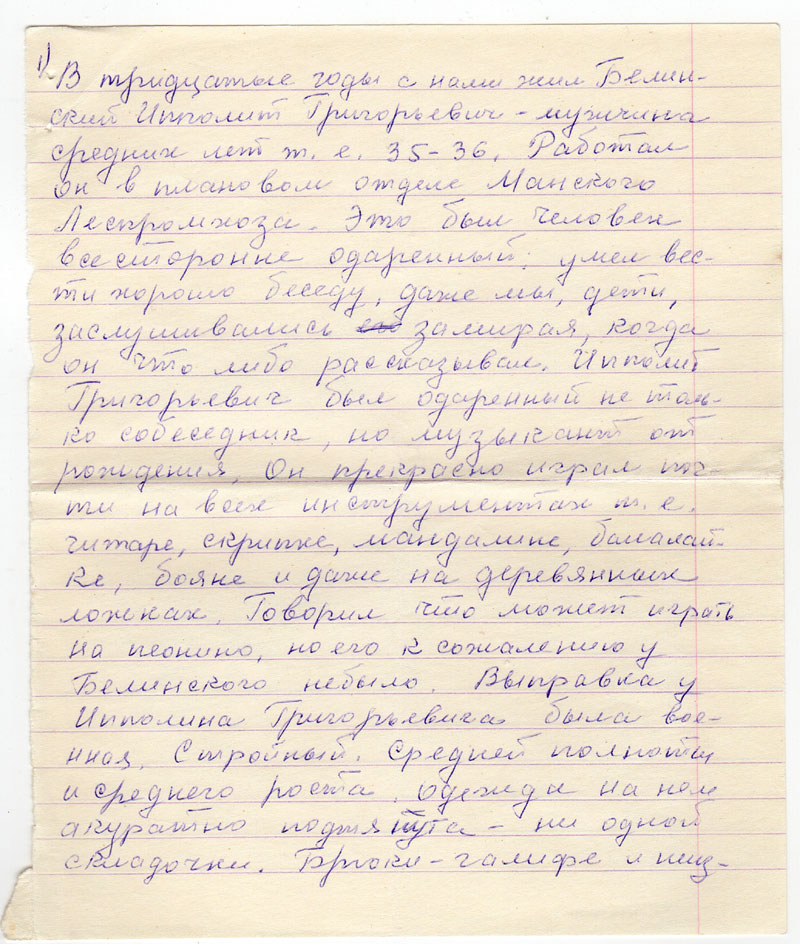 1)
В тридцатые годы с нами жил Белин-
ский Ипполит Григорьевич – мужчина
средних лет т. е. 35-36. Работал
он в плановом отделе Манского
Леспромхоза. Это был человек
всесторонне одаренный: умел вес-
ти хорошо беседу, даже мы, дети,
заслушивались замирая, когда
он что либо рассказывал. Ипполит
Григорьевич был одаренный не толь-
ко собеседник, но музыкант от
рождения. Он прекрасно играл поч-
ти на всех инструментах т. е.
гитаре, скрипке, мандалине, балалай-
ке, бояне и даже на деревянных
ложках. Говорил что может играть
на пеонино, но его к сожалению у
Белинского небыло. Выправка у
Ипполита Григорьевича была вое-
нная. Стройный. Средней полноты
и среднего роста, одежда на нем
акуратно подтянута – ни одной
складочки. Брюки-галифе и пид-